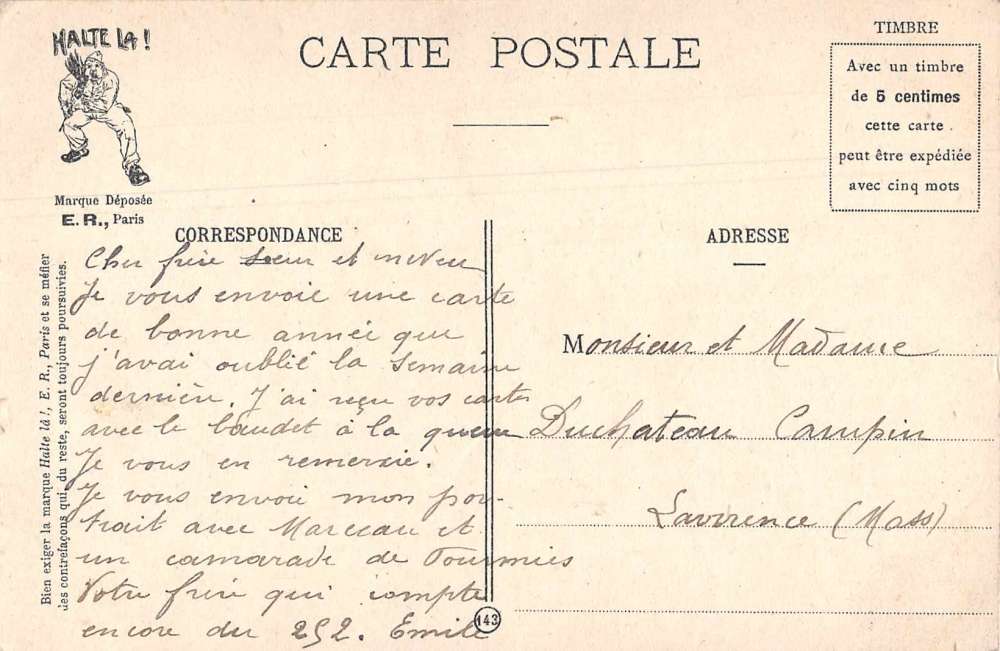 HALTE LA !
Marque Déposée
E. R., Paris
CARTE POSTALE
TIMBRE
Avec un timbre
de 5 centimes
cette carte
peut être expédiée
avec cinq mots
CORRESPONDANCE
Cher frère sœur et neveu
Je vous envoie une carte
de bonne année que
j'avai oublié la semaine
dernière. J'ai reçu vos cartes
avec le baudet à la queue
Je vous en remercie.
Je vous envoie mon por-
trait avec Marceau et
un camarade de Fourmies
Votre frère qui compte
encore du 252. Emile
143
ADRESSE
Monsieur et Madame
Duchateau Campin
Lavirence (Mass)
Bien exiger la marque Halte là !, E. R., Paris et se méfier
des contrefaçons qui, du reste, seront toujours poursuivies.